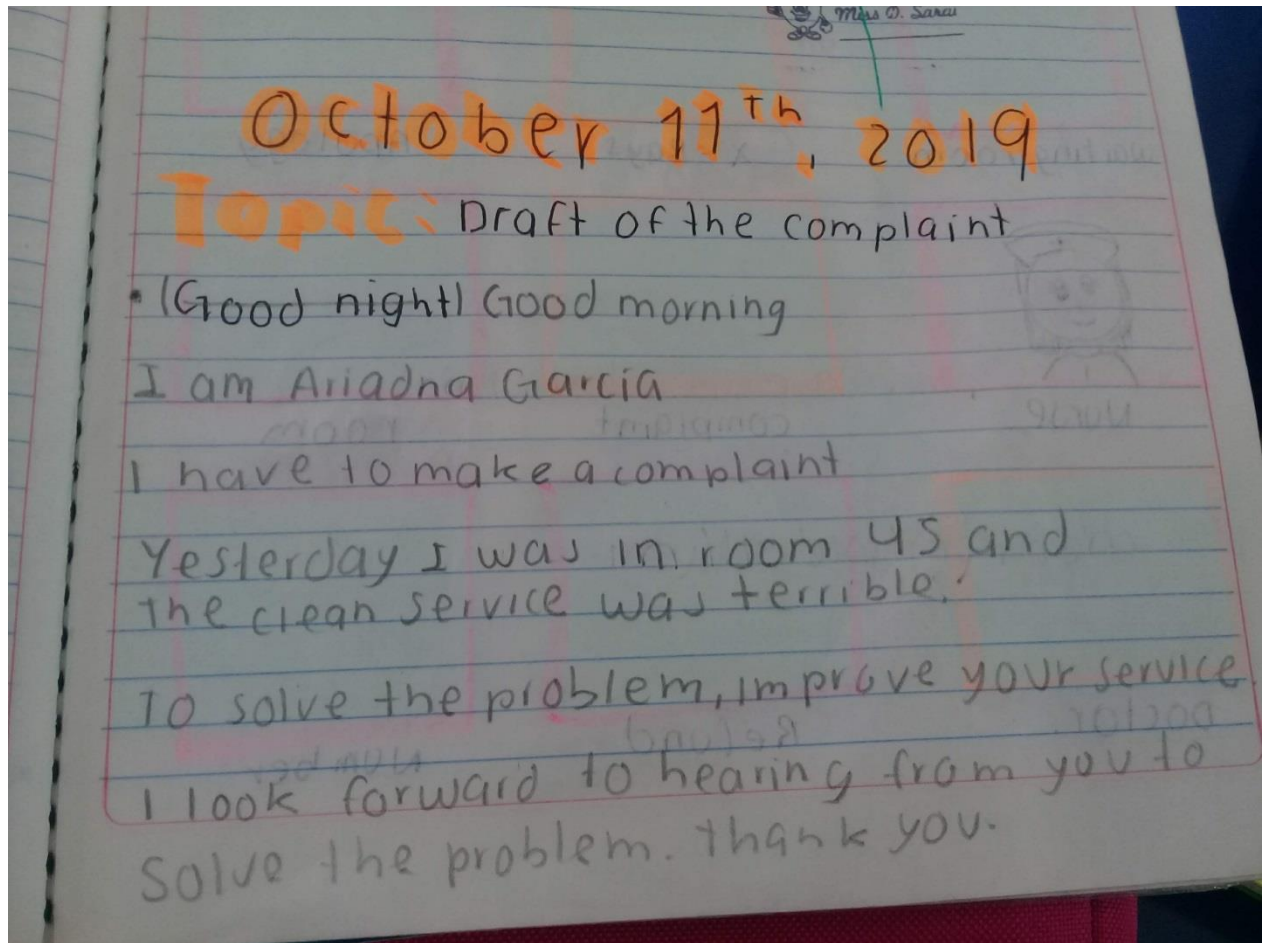 Miss D. Sarai
October 11Th, 2019
Topic: Draft of the complaint
• (Good night) Good morning
I am Ariadna Garcia
I have to make a complaint
Yesterday I was in room 45 and
the clean service was terrible.
To solve the problem, improve your service
I look forward to hearing from you to
solve the problem. thank you.